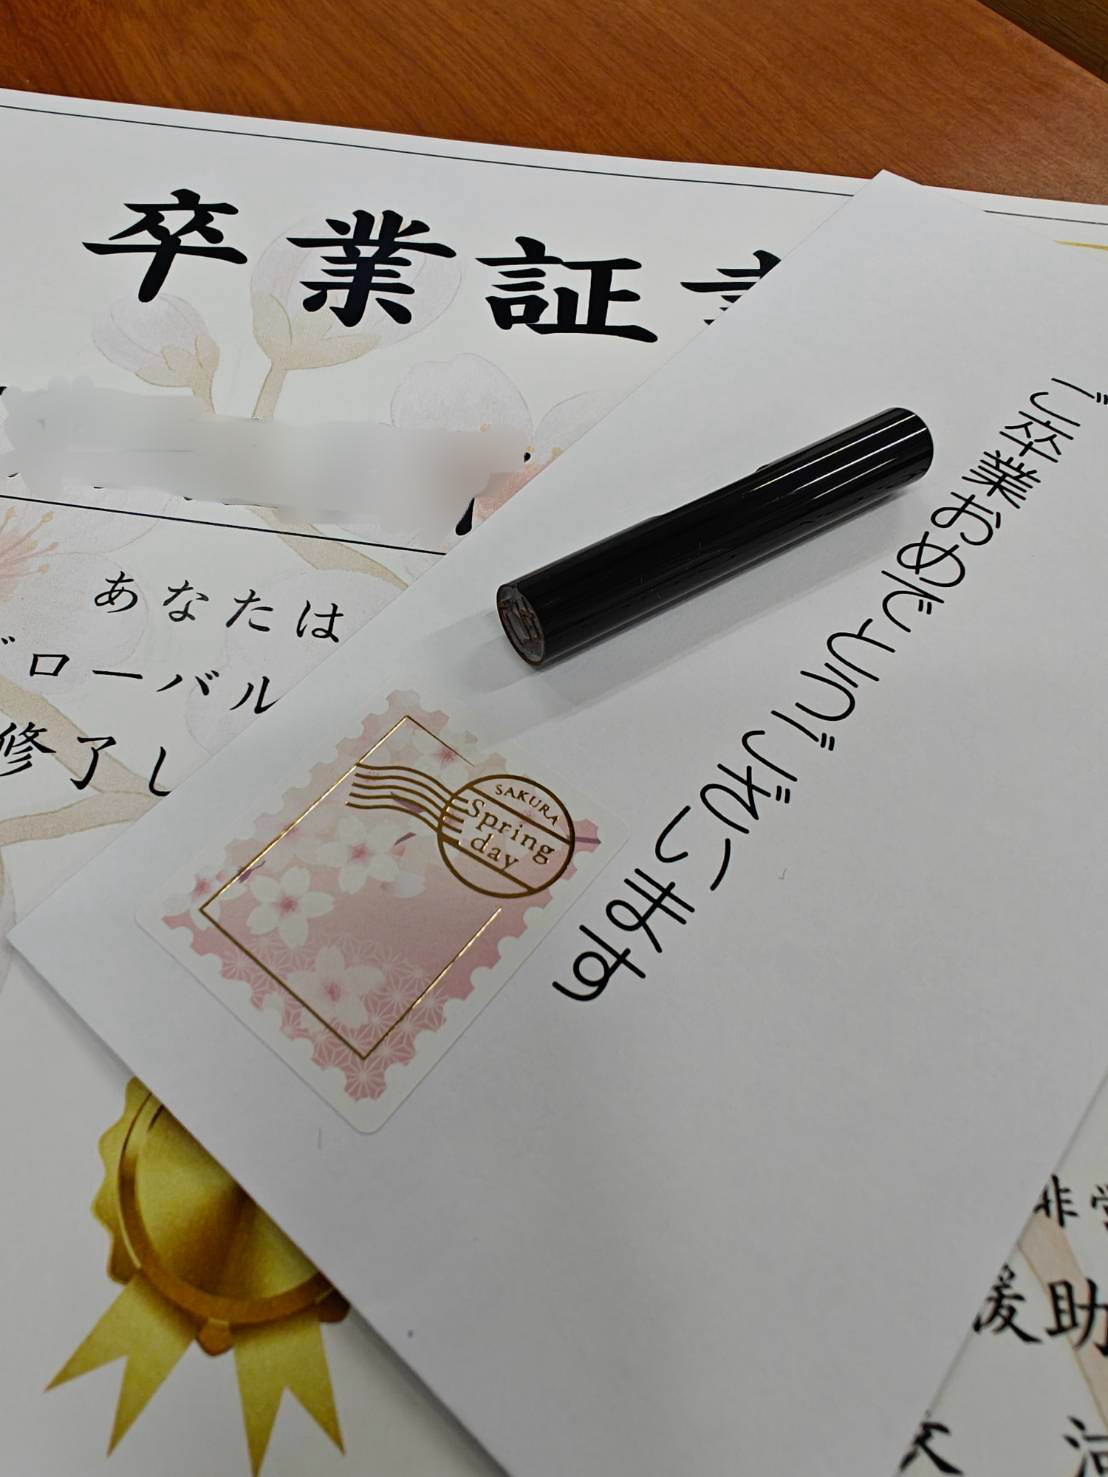 卒業証
あなたは
グローバル
修了し
ご卒業おめでとうございます
SAKURA
Spring
day
援助